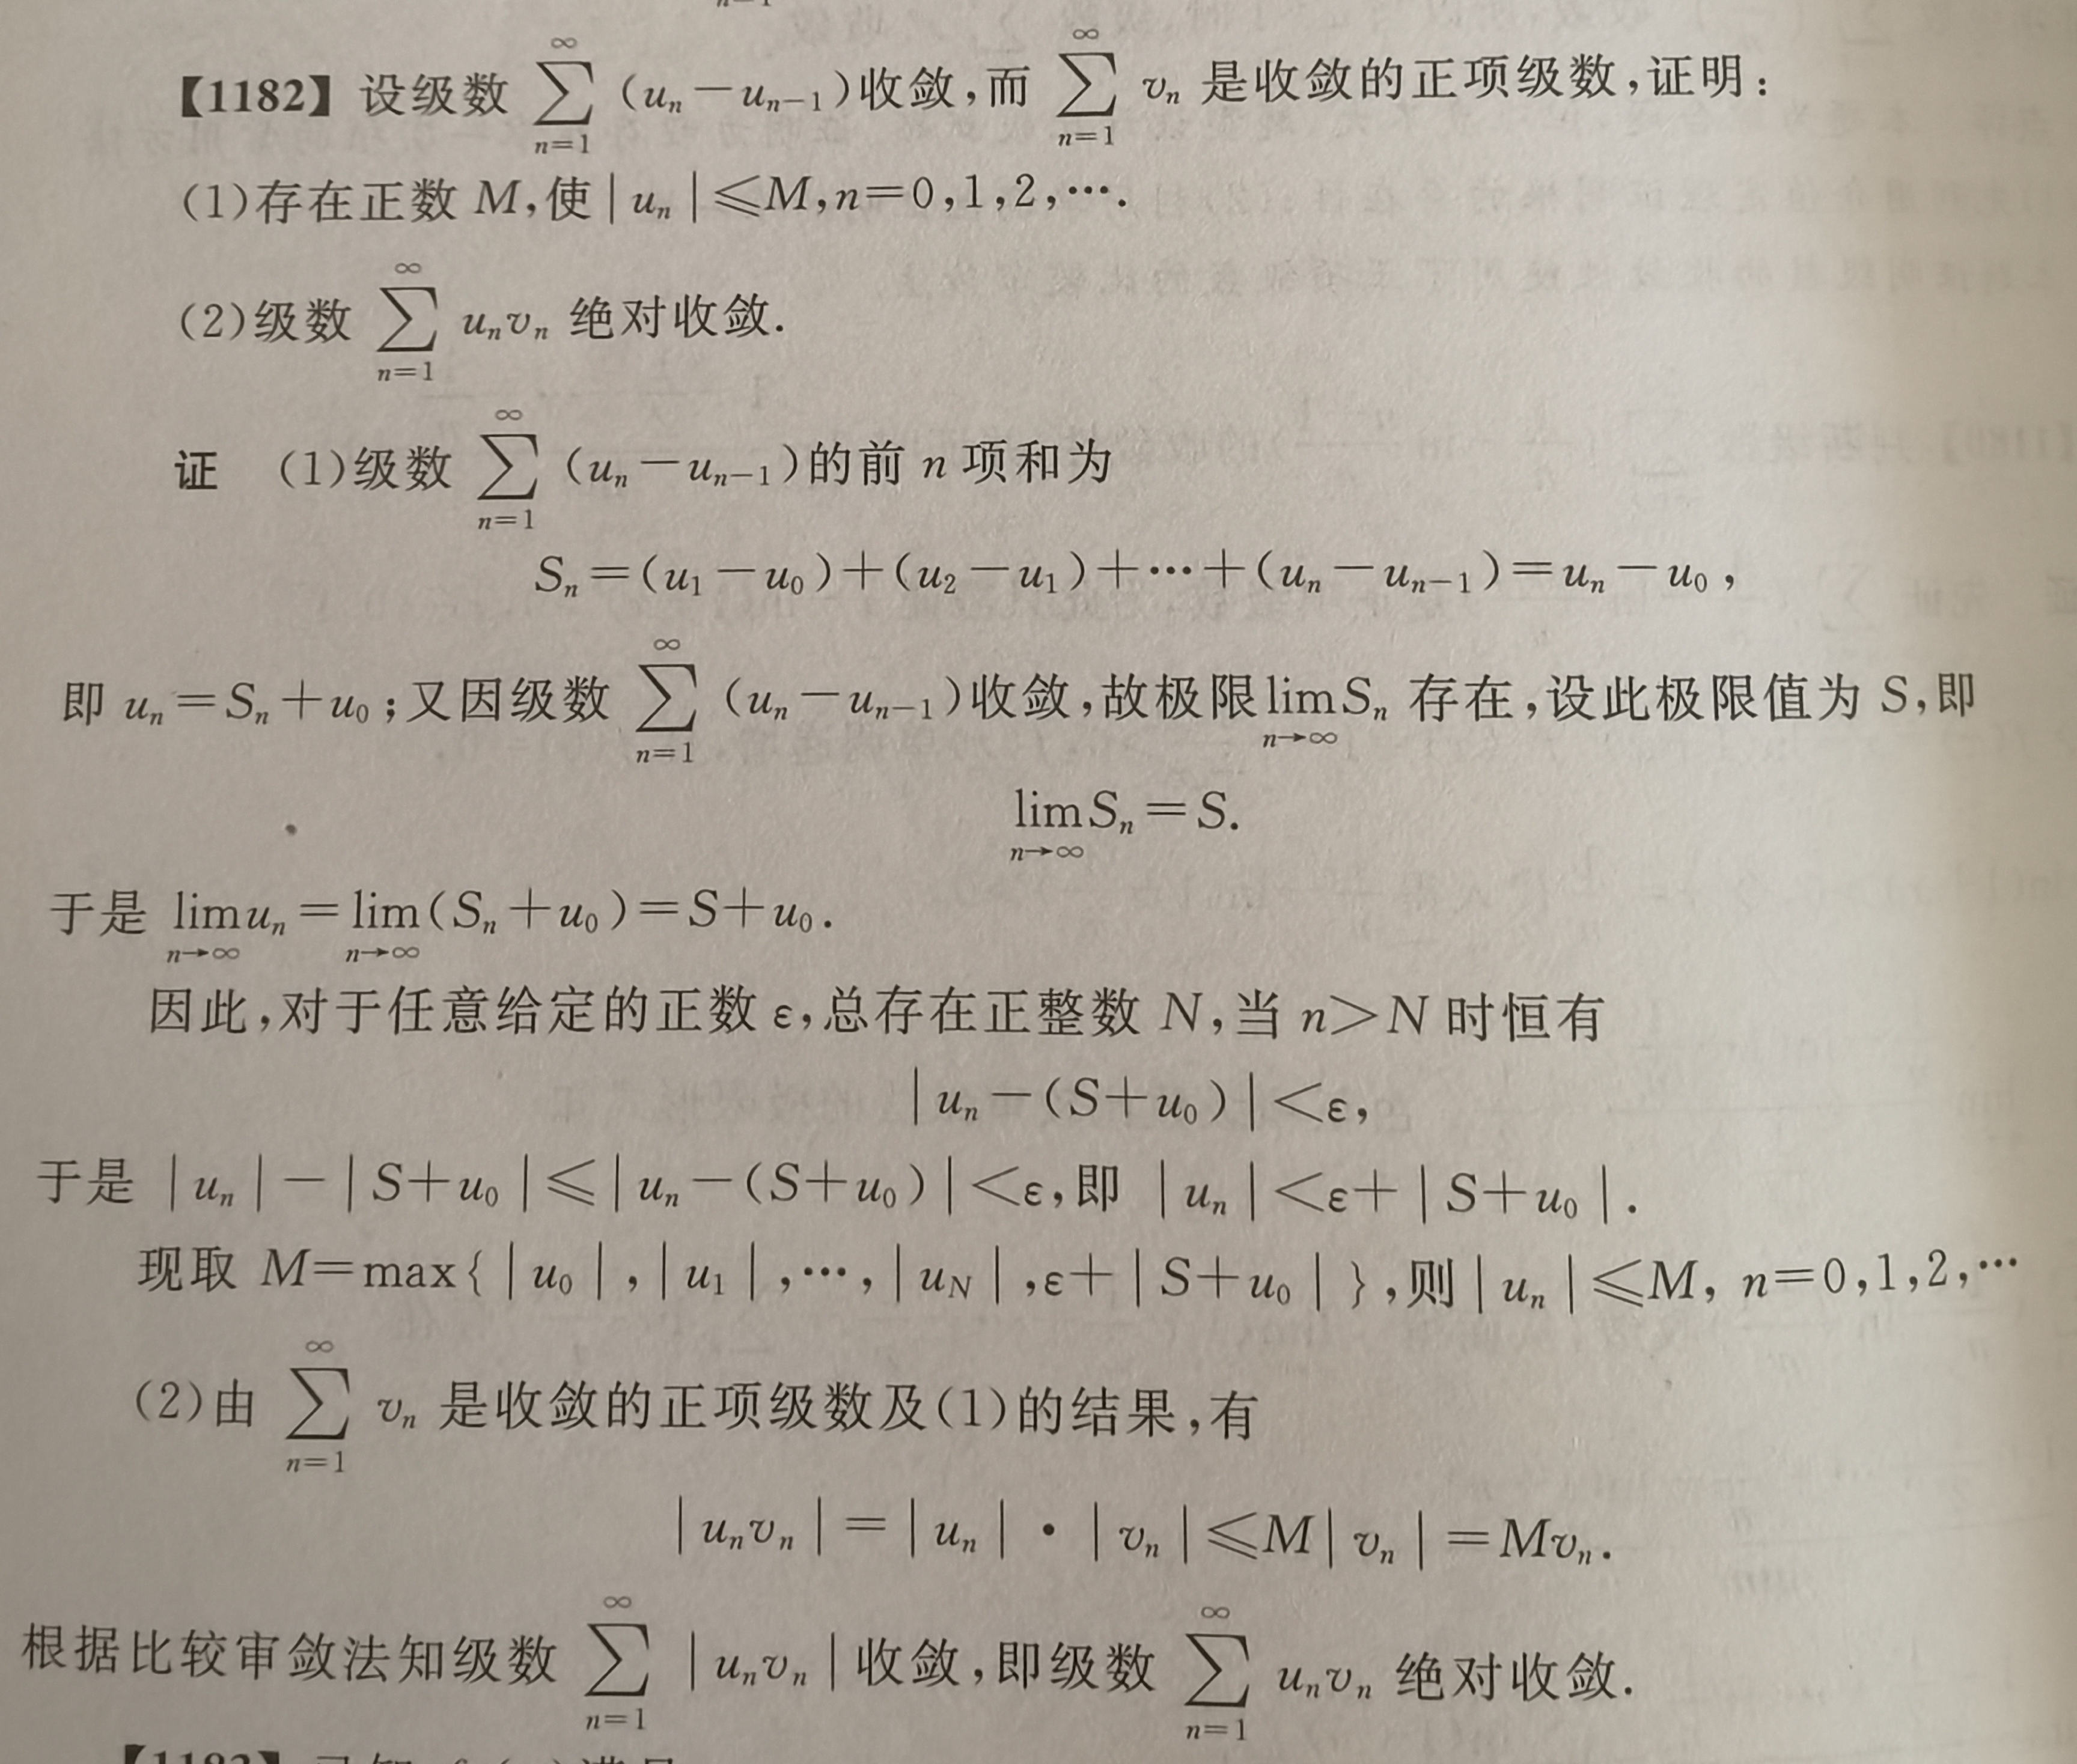 【1182】设级数 $\sum_{n=1}^{\infty}(u_n-u_{n-1})$收敛,而 $\sum_{n=1}^{\infty}v_n$ 是收敛的正项级数,证明:
(1)存在正数 $M$,使$|u_n|\leqslant M,n=0,1,2,\cdots$.
(2)级数 $\sum_{n=1}^{\infty}u_nv_n$ 绝对收敛.
证 (1)级数 $\sum_{n=1}^{\infty}(u_n-u_{n-1})$的前 $n$ 项和为
$S_n=(u_1-u_0)+(u_2-u_1)+\cdots+(u_n-u_{n-1})=u_n-u_0,$
即 $u_n=S_n+u_0$;又因级数 $\sum_{n=1}^{\infty}(u_n-u_{n-1})$收敛,故极限$\lim_{n\to\infty}S_n$ 存在,设此极限值为 S,即
$\lim_{n\to\infty}S_n=S.$
于是 $\lim_{n\to\infty}u_n=\lim_{n\to\infty}(S_n+u_0)=S+u_0.$
因此,对于任意给定的正数 ε,总存在正整数 $N$,当 $n>N$ 时恒有
$|u_n-(S+u_0)|<ε,$
于是 $|u_n|-|S+u_0|\leqslant|u_n-(S+u_0)|<ε$,即 $|u_n|<ε+|S+u_0|.$
现取 $M=\max\{|u_0|,|u_1|,\cdots,|u_N|,ε+|S+u_0|\}$,则$|u_n|\leqslant M,\ n=0,1,2,\cdots$
(2)由 $\sum_{n=1}^{\infty}v_n$ 是收敛的正项级数及(1)的结果,有
$|u_nv_n|=|u_n|\cdot|v_n|\leqslant M|v_n|=Mv_n.$
根据比较审敛法知级数 $\sum_{n=1}^{\infty}|u_nv_n|$收敛,即级数 $\sum_{n=1}^{\infty}u_nv_n$ 绝对收敛.